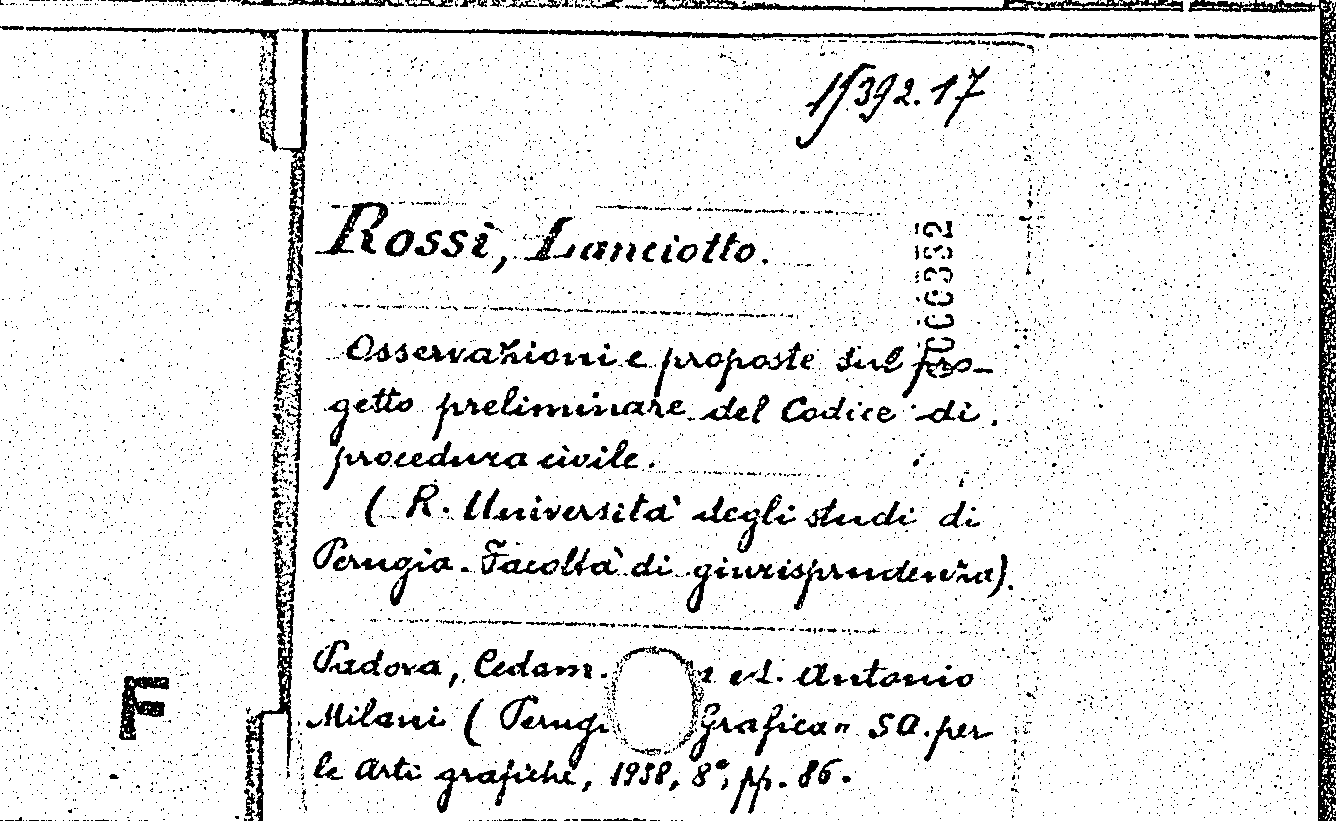 15392.17
Rossi, Lanciotto.
Osservazioni e proposte sul pro-
getto preliminare del Codice di
procedura civile.
( R. Università degli studi di
Perugia. Facoltà di giurisprudenza).
Padova, Cedam. ed. Antonio
Milani ( Perugi Grafica" S.A. per
le Arti grafiche, 1938, 8°, pp. 86.
F